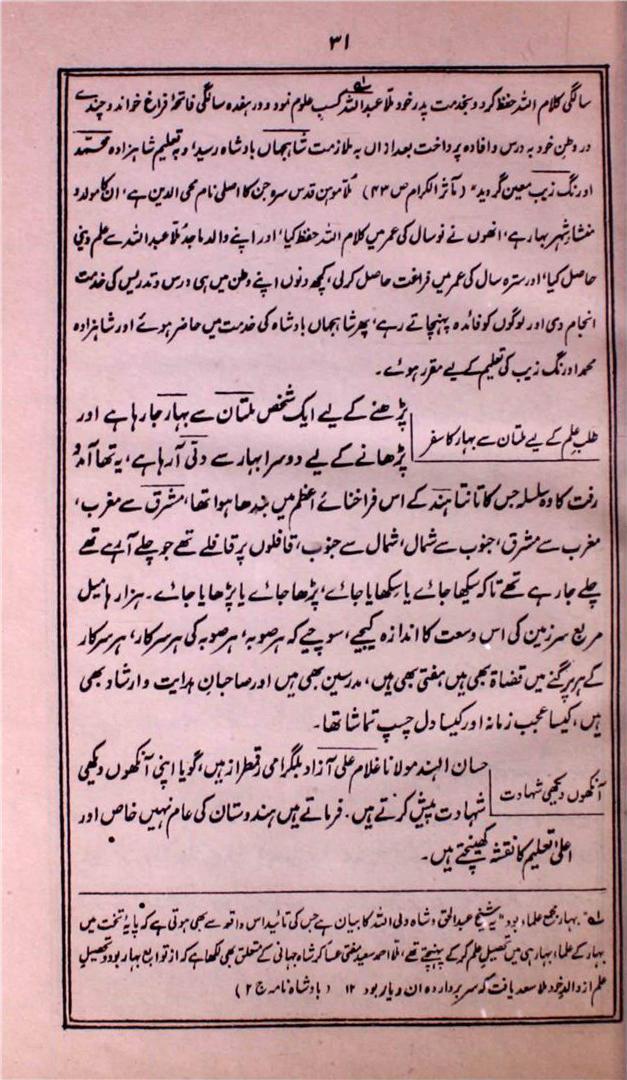 ۳۱
سالگی کلام اللہ حفظ کرد و بخدمت پدر خود ملّا عبداللہ کسب علوم نمود و در ہفدہ سالگی فاتحۂ فراغ خواند و چندے
در وطن خود بہ درس و افادہ پرداخت بعد ازاں بہ ملازمت شاہجہاں بادشاہ رسید، و بہ تعلیم شاہزادہ محمّد
اورنگ زیب معین گردید" (مآثر الکرام ص ۴۳) ملّا موہن قدس سرہ جن کا اصلی نام محی الدین ہے، ان کا مولد و
منشا شہر بہار ہے، انھوں نے نو سال کی عمر میں کلام اللہ حفظ کیا، اور اپنے والد ماجد ملّا عبداللہ سے علم دینی
حاصل کیا، اور سترہ سال کی عمر میں فراغت حاصل کرلی، کچھ دنوں اپنے وطن میں ہی درس و تدریس کی خدمت
انجام دی اور لوگوں کو فائدہ پہنچاتے رہے، پھر شاہجہاں بادشاہ کی خدمت میں حاضر ہوئے اور شاہزادہ
محمد اورنگ زیب کی تعلیم کے لیے مقرر ہوئے۔
طلب علم کے لیے ملتان سے بہار کا سفر
پڑھنے کے لیے ایک شخص ملتان سے بہار جا رہا ہے اور
پڑھانے کے لیے دوسرا بہار سے دلّی آ رہا ہے، یہ تھا آمد و
رفت کا وہ سلسلہ جس کا تانتا ہند کے اس فراخنائے اعظم میں بندھا ہوا تھا، مشرق سے مغرب،
مغرب سے مشرق، جنوب سے شمال، شمال سے جنوب، قافلوں پر قافلے تھے جو چلے آرہے تھے
چلے جارہے تھے تاکہ سیکھا جائے یا سکھایا جائے، پڑھا جائے یا پڑھایا جائے۔ ہزارہا میل
مربع سرزمین کی اس وسعت کا اندازہ کیجیے، سوچیے کہ ہر صوبہ، ہر صوبہ کی ہر سرکار، ہر سرکار
کے ہر پرگنے میں قضاۃ بھی ہیں، مفتی بھی ہیں، مدرسین بھی ہیں اور صاحبانِ ہدایت و ارشاد بھی
ہیں، کیسا عجب زمانہ اور کیسا دل چسپ تماشا تھا۔
آنکھوں دیکھی شہادت
حسان الہند مولانا غلام علی آزاد بلگرامی رقمطراز ہیں، گویا اپنی آنکھوں دیکھی
شہادت پیش کرتے ہیں۔ فرماتے ہیں ہندوستان کی عام نہیں خاص اور
اعلیٰ تعلیم کا نقشہ کھینچتے ہیں۔
لہ "بہار مجمع علماء بود" یہ شیخ عبدالحق و شاہ ولی اللہ کا بیان ہے جس کی تائید اس واقعہ سے بھی ہوتی ہے کہ پایۂ تخت میں
بہار کے علماء بہار ہی میں تحصیلِ علم کرکے پہنچتے تھے، ملّا احمد سعید مفتی عساکر شاہ جہانی کے متعلق بھی لکھا ہے کہ از توابع بہار بود و تحصیلِ
علم از والدِ خود ملا سعد یافت کہ سربردارده ان و یار بود ۱۲ (بادشاہ نامہ ج ۲)